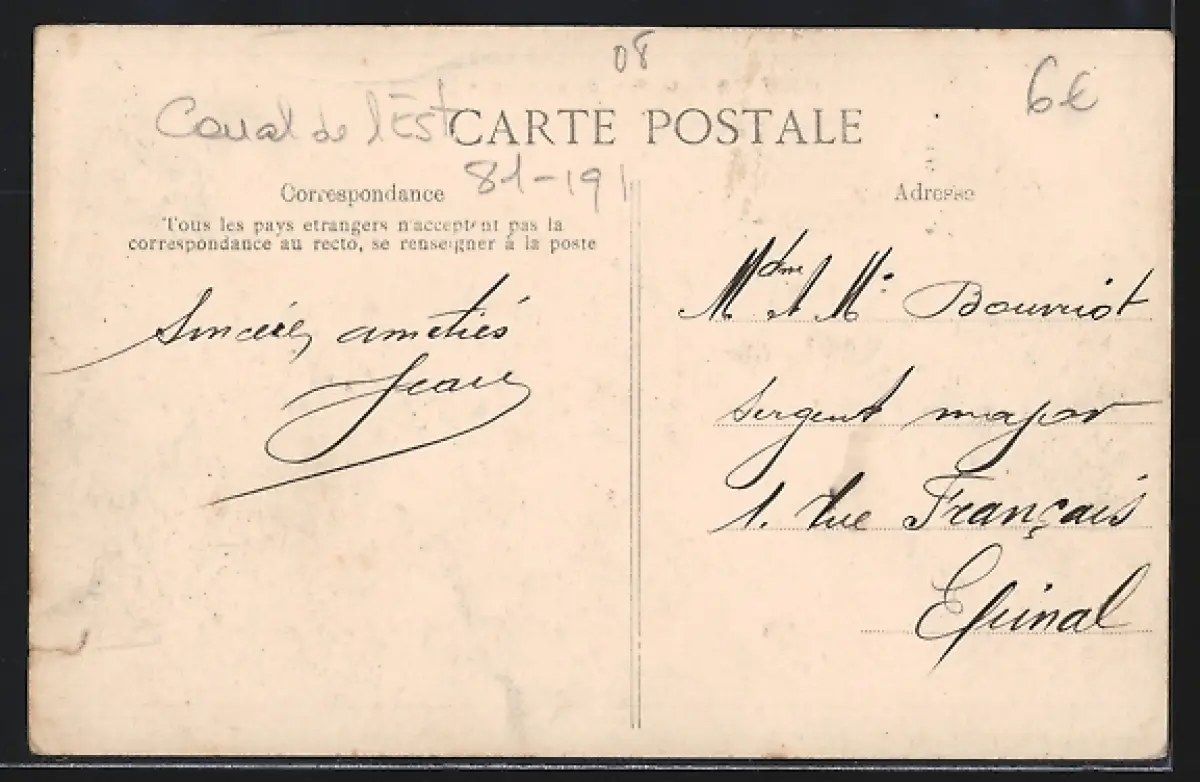 08
6€
Canal de l'Est
CARTE POSTALE
81-191
Correspondance
Tous les pays etrangers n'acceptent pas la
correspondance au recto, se renseigner à la poste
Sincères ametiés
Jean
Adresse
Mdme et Mr Bouvriot
Sergent major
1. Rue Français
Epinal